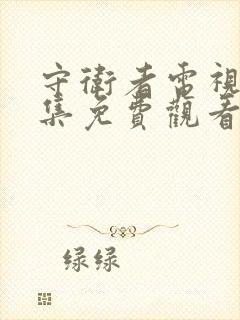 守衛者電視
集免費觀看
绿绿